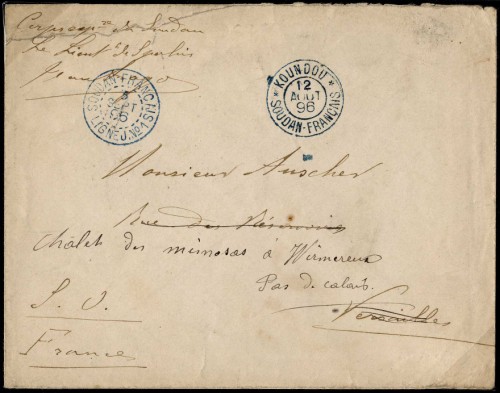 Corps exp^re du Soudan
Le Lieut^t de Spahis
SOUDAN-FRANCAIS
SEPT
LIGNE J. N°1
KOUNDOU
12
AOUT
96
SOUDAN-FRANCAIS
Monsieur Auscher
Rue des Réservoirs
Châlet des mimosas à Wimereux
Pas de calais.
S. O.
Versailles
France